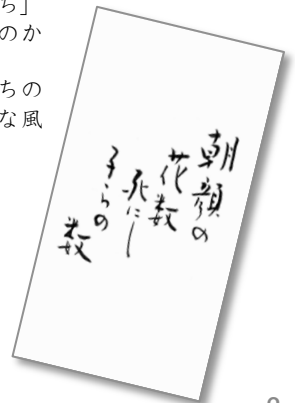 ち」
のか
ちの
な風
朝顔の
花数
死にし
子らの
数